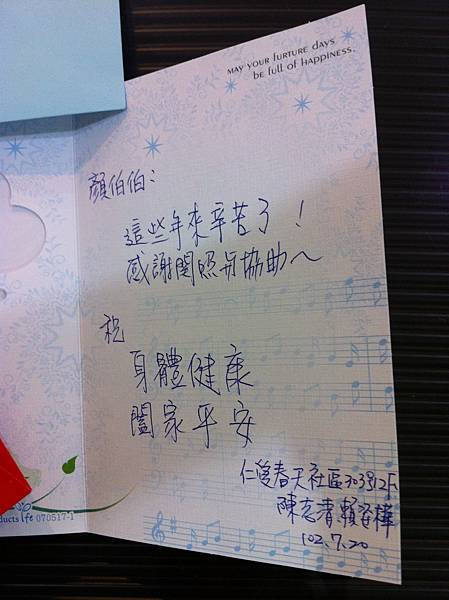 MAY YOUR FURTURE days
be full of HAPPINESS.
顏伯伯：
這些年來辛苦了！
感謝關照与協助～
祝
身體健康
闔家平安
仁愛春天社區303號12F
陳志清、賴姿樺
102.7.20
ducts life 070517-1